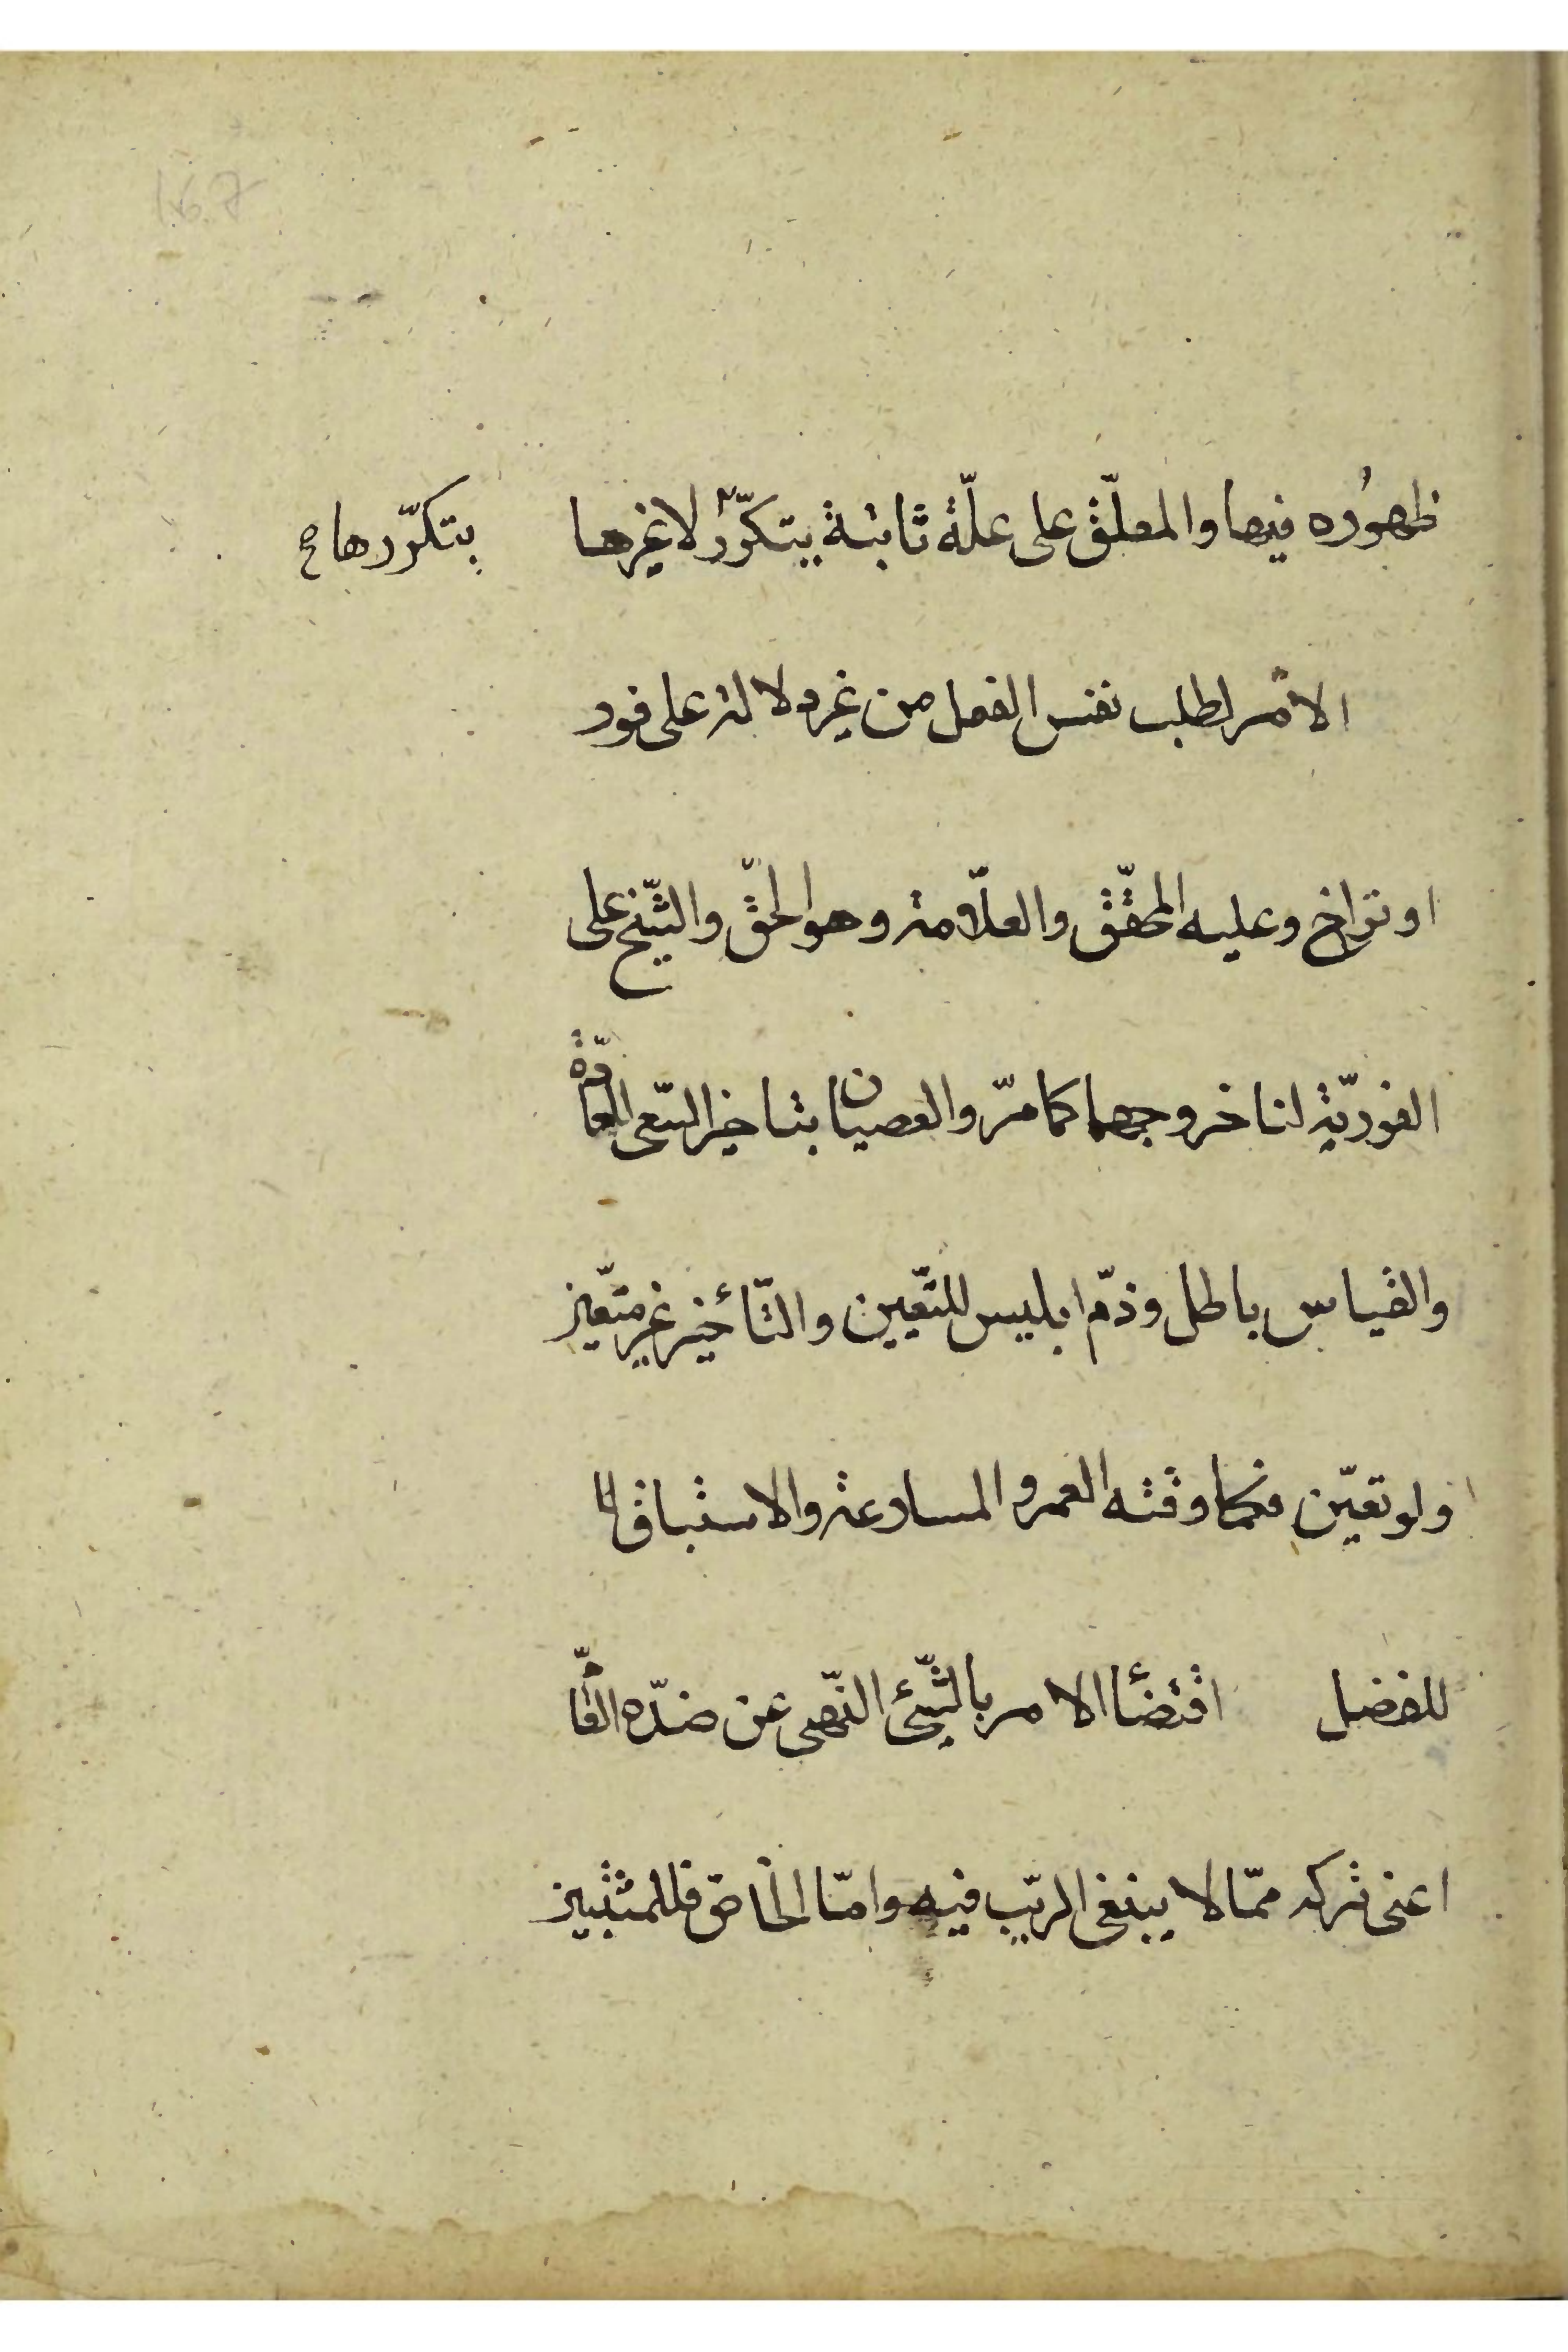 ظهوُره فيها والمعلّق على علّة ثابتة يتكرّر لا غيرها
بتكرّرها صح
الأمر لطلب نفس الفعل من غير دلالة على فور
او تراخ وعليه المحقّق والعلاّمة وهو الحقّ والشّيخ على
الفوريّة لنا خروجهما كما مرّ والعصيان بتاخير السّقى للعادّة
والقياس باطل وذمّ ابليس للتّعيين والتّأخير غير متعّين
ولو تعيّن فكما وقته العمر والمسارعة والاستباق
للفضل اقتضأ الامر بالشّيئ النّهى عن ضدّه العامّ
اعنى تركه ممّا لا ينبغى الرّيب فيه وامّا الخاصّ فللمثبتين